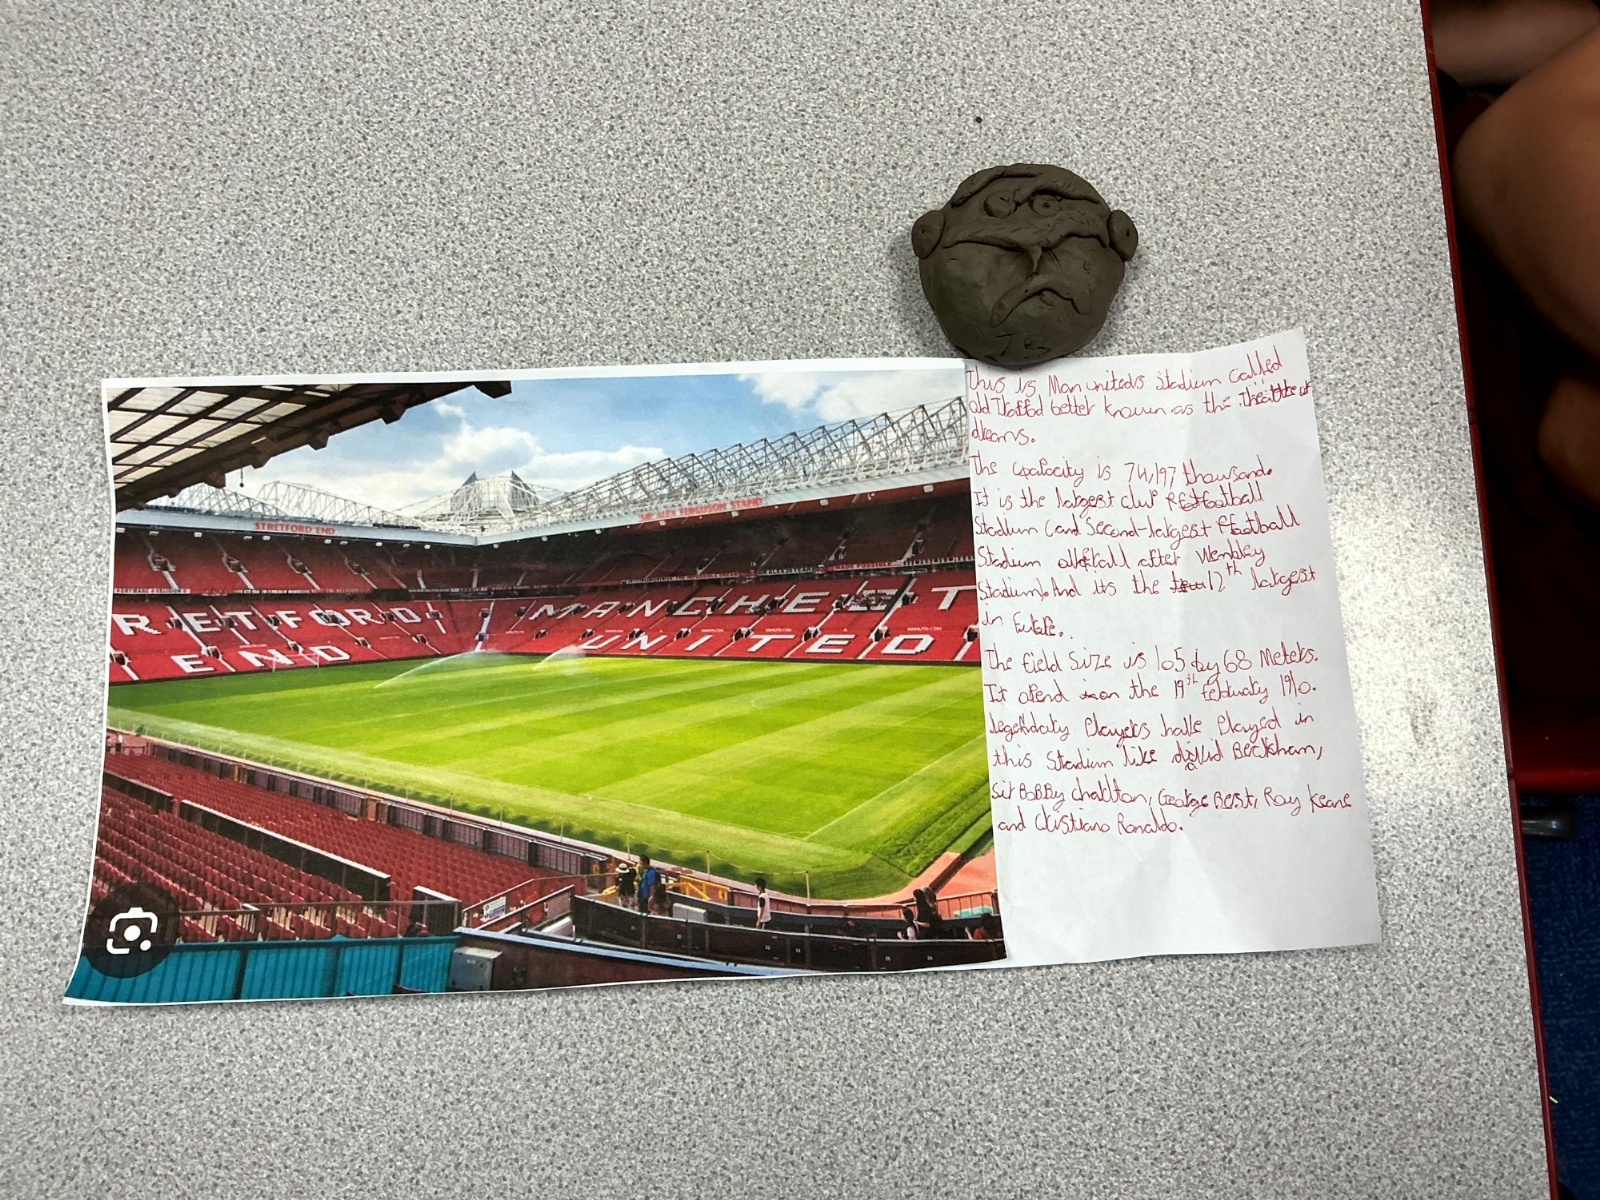 STRETFORD END
SIR ALEX FERGUSON STAND
RETFORD
END
MANCHEST
UNITED
J B
This is Man united's Stadium Called
old Traffod better known as the Theatre of
dreams.
The capacity is 74,197 thousand.
It is the largest club football
Stadium (and Second-largest football
Stadium overall after Wembley
Stadium). And its the 12th largest
in Europe.
The field size is 105 by 68 Meters.
It opend on the 19th february 1910.
legendary Players have Played in
this Stadium like david Beckham,
Sir BoBBy charlton, George Best, Roy Keane
and Cristiano Ronaldo.